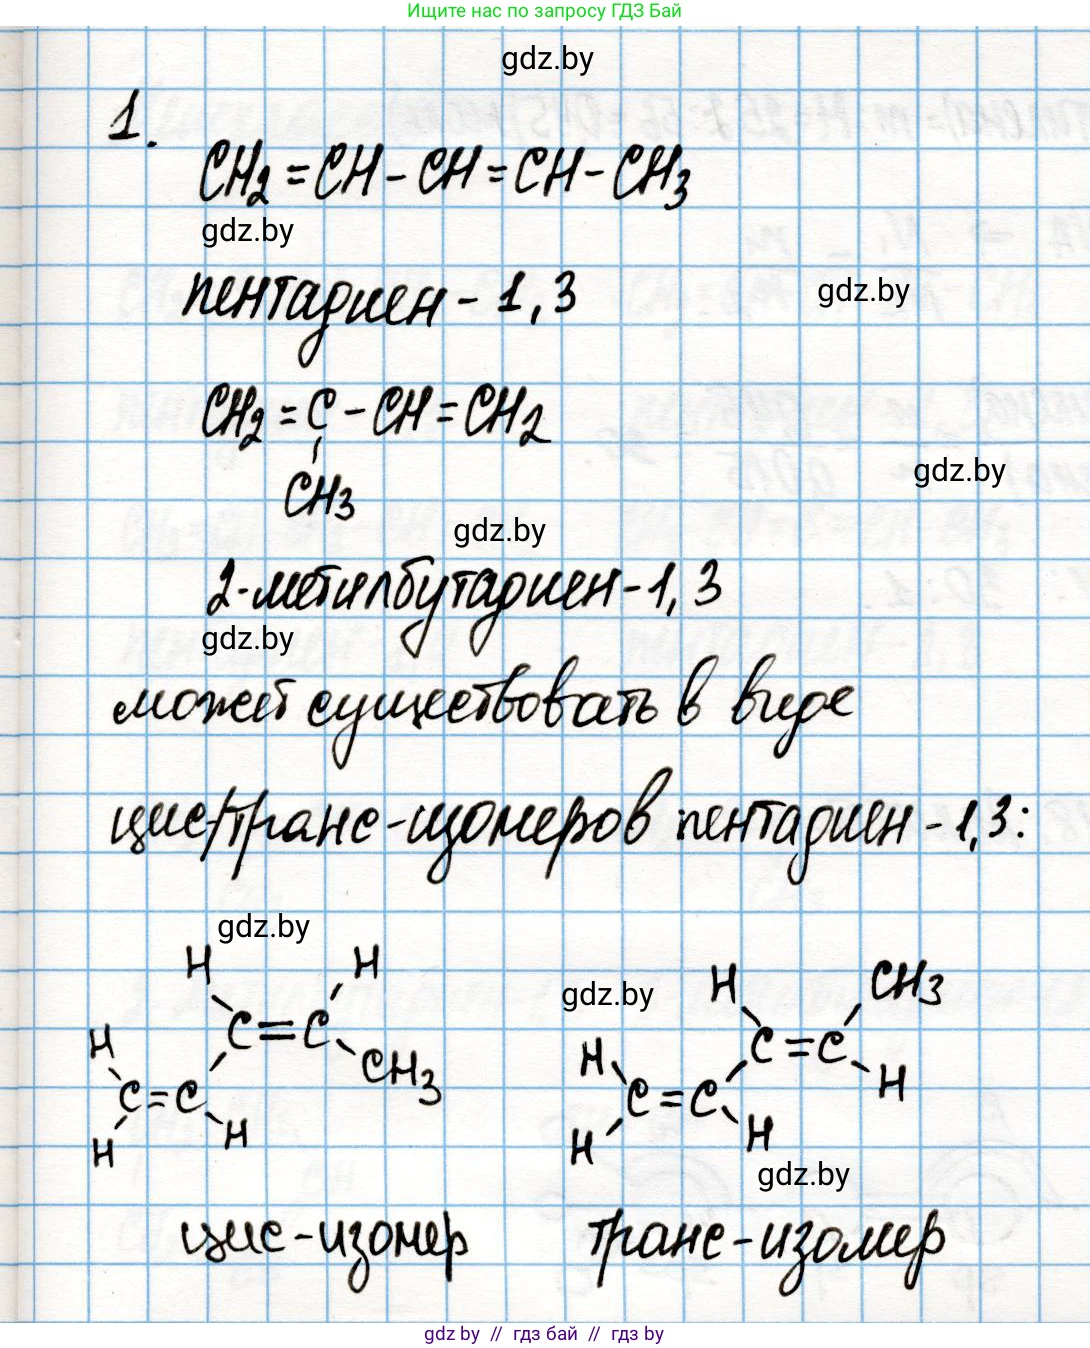 Ищите нас по запросу ГДЗ Бай
gdz.by
1.
CH2=CH-CH=CH-CH3
gdz.by
пентадиен-1,3
gdz.by
CH2=C-CH=CH2
CH3
gdz.by
gdz.by
2-метилбутадиен-1,3
gdz.by
может существовать в виде
цис/транс-изомеров пентадиен-1,3:
gdz.by
H H
H CH3
gdz.by
C=C
H
C=C
H
CH3
C=C
H
C=C
H
H
H
H
H
gdz.by
цис-изомер транс-изомер
gdz by // гдз бай // гдз by